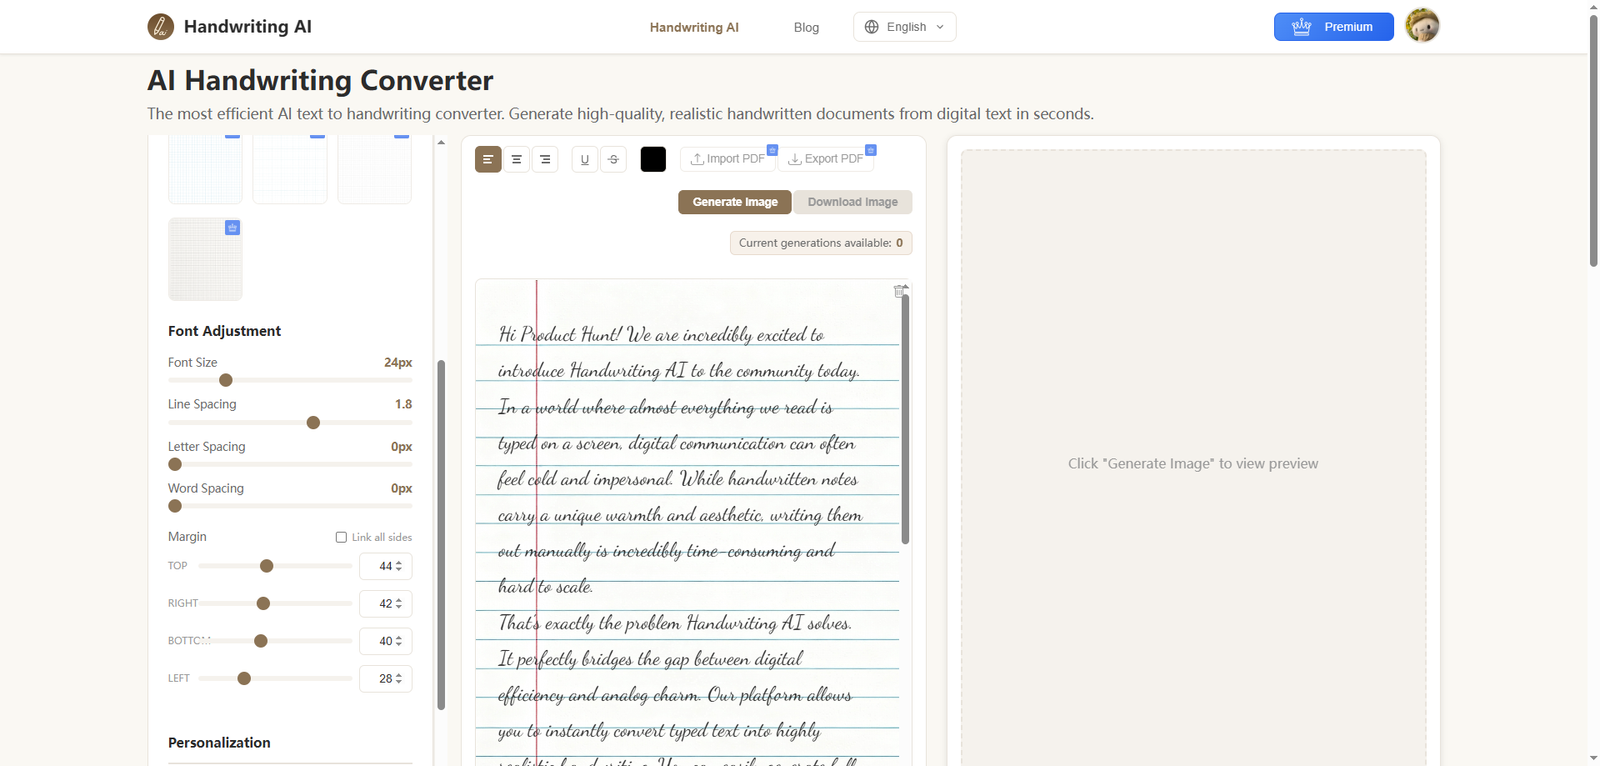 Handwriting AI
Handwriting AI
Blog
English
Premium
AI Handwriting Converter
The most efficient AI text to handwriting converter. Generate high-quality, realistic handwritten documents from digital text in seconds.
Font Adjustment
Font Size 24px
Line Spacing 1.8
Letter Spacing 0px
Word Spacing 0px
Margin Link all sides
TOP 44
RIGHT 42
BOTTOM 40
LEFT 28
Personalization
U S Import PDF Export PDF
Generate Image Download Image
Current generations available: 0
Hi Product Hunt! We are incredibly excited to
introduce Handwriting AI to the community today.
In a world where almost everything we read is
typed on a screen, digital communication can often
feel cold and impersonal. While handwritten notes
carry a unique warmth and aesthetic, writing them
out manually is incredibly time-consuming and
hard to scale.
That's exactly the problem Handwriting AI solves.
It perfectly bridges the gap between digital
efficiency and analog charm. Our platform allows
you to instantly convert typed text into highly
Click "Generate Image" to view preview